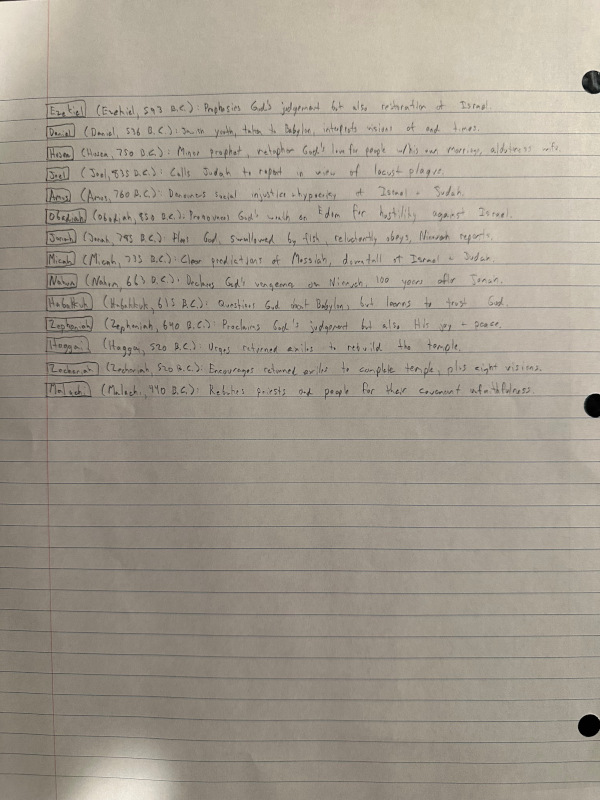 Ezekiel (Ezekiel, 593 B.C.): Prophesies God's judgement but also restoration of Israel.
Daniel (Daniel, 536 B.C.): Jewish youth, taken to Babylon, interprets visions of end times.
Hosea (Hosea, 750 B.C.): Minor prophet, metaphor God's love for people w/his own marriage,
Joel (Joel, 835 B.C.): Calls Judah to repent in view of locust plague.
Amos (Amos, 760 B.C.): Denounces social injustice + hypocrisy of Israel + Judah.
Obediah (Obadiah, 850 B.C.): Pronounces God's wrath on Edom for hostility against Israel.
Jonah (Jonah, 785 B.C.): Flees God, swallowed by fish, reluctantly obeys, Ninevah repents.
Micah (Micah, 733 B.C.): Clear predictions of Messiah, downfall of Israel + Judah.
Nahum (Nahum, 663 B.C.): Declares God's vengeance on Nineveh, 100 years after Jonah.
Habakkuk (Habakkuk, 615 B.C.): Questions God about Babylon, but learns to trust God.
Zephaniah (Zephaniah, 640 B.C.): Proclaims God's judgement but also His joy + peace.
Haggai (Haggai, 520 B.C.): Urges returned exiles to rebuild the temple.
Zechariah (Zechariah, 520 B.C.): Encourages returned exiles to complete temple, plus eight visions.
Malachi (Malachi, 440 B.C.): Rebukes priests and people for their covenant unfaithfulness.